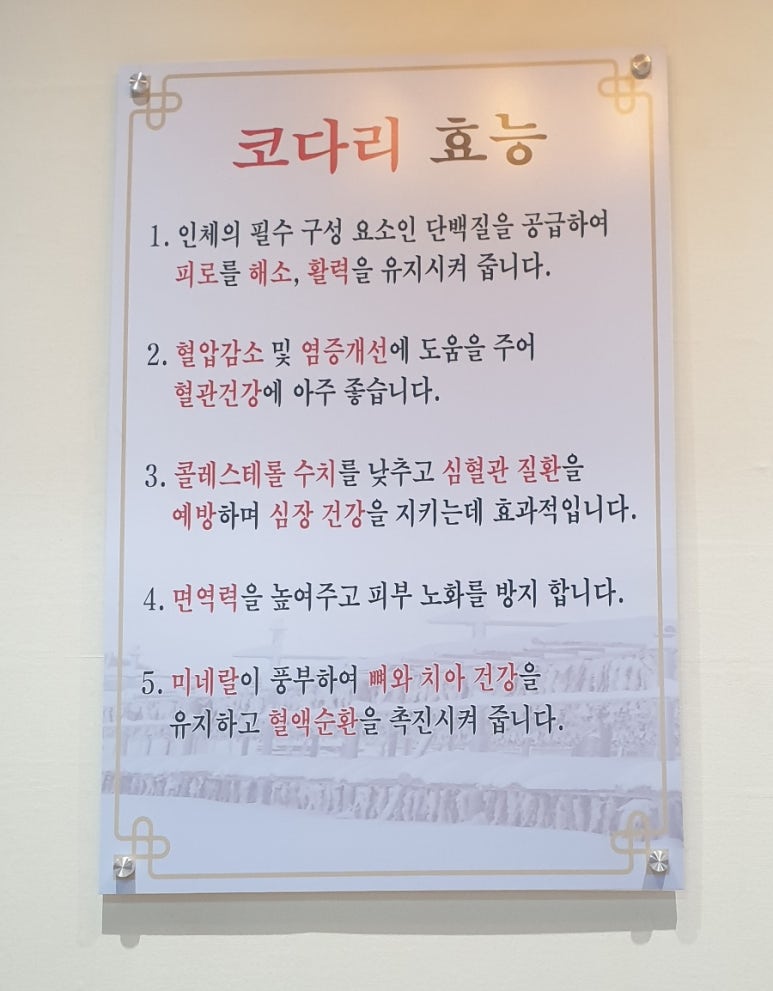 코다리 효능
1. 인체의 필수 구성 요소인 단백질을 공급하여
피로를 해소, 활력을 유지시켜 줍니다.
2. 혈압감소 및 염증개선에 도움을 주어
혈관건강에 아주 좋습니다.
3. 콜레스테롤 수치를 낮추고 심혈관 질환을
예방하며 심장 건강을 지키는데 효과적입니다.
4. 면역력을 높여주고 피부 노화를 방지 합니다.
5. 미네랄이 풍부하여 뼈와 치아 건강을
유지하고 혈액순환을 촉진시켜 줍니다.